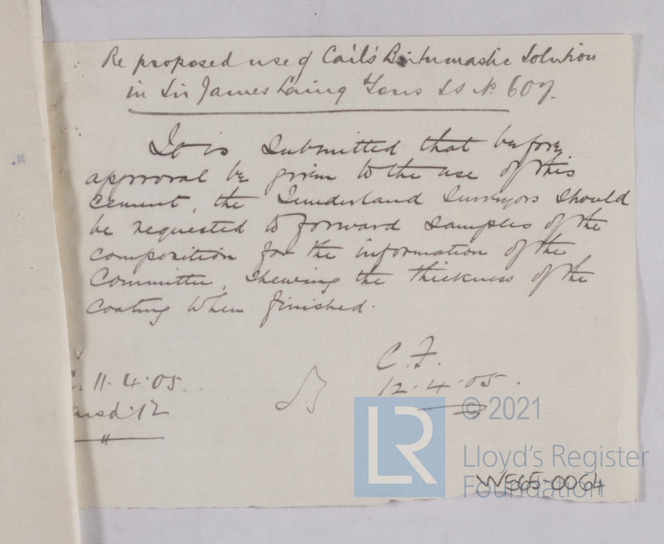 Re proposed use of Cail's Bitumastic Solution
in Sir James Laing & Sons SS No 607.
It is submitted that before
approval be given to the use of this
cement, the Sunderland Surveyors should
be requested to forward samples of the
composition for the information of the
Committee, shewing the thickness of the
coating when finished.
C.F.
12.4.05.
11.4.05.
12
"
© 2021
LR
Lloyd's Register
Foundation
W565-0064